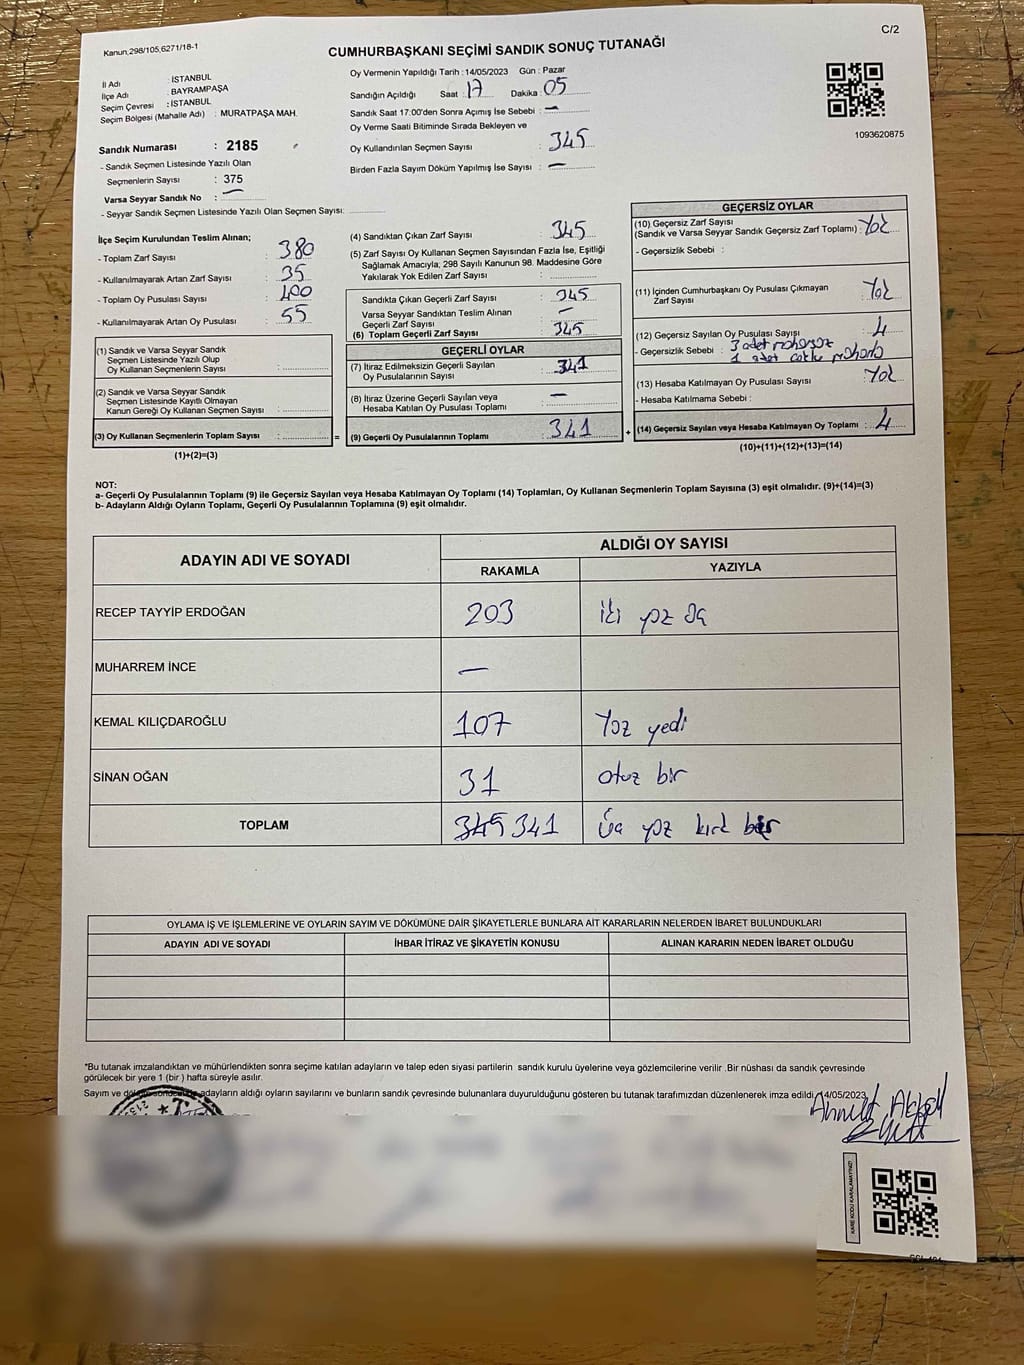 C/2
Kanun,298/105,6271/18-1
CUMHURBAŞKANI SEÇİMİ SANDIK SONUÇ TUTANAĞI
İl Adı : İSTANBUL
İlçe Adı : BAYRAMPAŞA
Seçim Çevresi : İSTANBUL
Seçim Bölgesi (Mahalle Adı) : MURATPAŞA MAH.
Sandık Numarası : 2185
- Sandık Seçmen Listesinde Yazılı Olan
Seçmenlerin Sayısı : 375
Varsa Seyyar Sandık No : —
- Seyyar Sandık Seçmen Listesinde Yazılı Olan Seçmen Sayısı:
Oy Vermenin Yapıldığı Tarih : 14/05/2023 Gün : Pazar
Sandığın Açıldığı Saat : 17 Dakika 05
Sandık Saat 17:00'den Sonra Açımış İse Sebebi : —
Oy Verme Saati Bitiminde Sırada Bekleyen ve
Oy Kullandırılan Seçmen Sayısı : 345
Birden Fazla Sayım Döküm Yapılmış İse Sayısı : —
1093620875
İlçe Seçim Kurulundan Teslim Alınan;
- Toplam Zarf Sayısı : 380
- Kullanılmayarak Artan Zarf Sayısı : 35
- Toplam Oy Pusulası Sayısı : 400
- Kullanılmayarak Artan Oy Pusulası : 55
(1) Sandık ve Varsa Seyyar Sandık
Seçmen Listesinde Yazılı Olup
Oy Kullanan Seçmenlerin Sayısı :
(2) Sandık ve Varsa Seyyar Sandık
Seçmen Listesinde Kayıtlı Olmayan
Kanun Gereği Oy Kullanan Seçmen Sayısı :
(3) Oy Kullanan Seçmenlerin Toplam Sayısı : =
(1)+(2)=(3)
(4) Sandıktan Çıkan Zarf Sayısı : 345
(5) Zarf Sayısı Oy Kullanan Seçmen Sayısından Fazla İse, Eşitliği
Sağlamak Amacıyla; 298 Sayılı Kanunun 98. Maddesine Göre
Yakılarak Yok Edilen Zarf Sayısı :
Sandıkta Çıkan Geçerli Zarf Sayısı : 345
Varsa Seyyar Sandıktan Teslim Alınan
Geçerli Zarf Sayısı : —
(6) Toplam Geçerli Zarf Sayısı : 345
GEÇERLİ OYLAR
(7) İtiraz Edilmeksizin Geçerli Sayılan
Oy Pusulalarının Sayısı : 341
(8) İtiraz Üzerine Geçerli Sayılan veya
Hesaba Katılan Oy Pusulası Toplamı : —
(9) Geçerli Oy Pusulalarının Toplamı : 341 +
GEÇERSİZ OYLAR
(10) Geçersiz Zarf Sayısı
(Sandık ve Varsa Seyyar Sandık Geçersiz Zarf Toplamı) : Yok
- Geçersizlik Sebebi :
(11) İçinden Cumhurbaşkanı Oy Pusulası Çıkmayan
Zarf Sayısı : Yok
(12) Geçersiz Sayılan Oy Pusulası Sayısı : 4
- Geçersizlik Sebebi : 3 adet mühürsüz
1 adet çoklu mühürlü
(13) Hesaba Katılmayan Oy Pusulası Sayısı : Yok
- Hesaba Katılmama Sebebi :
(14) Geçersiz Sayılan veya Hesaba Katılmayan Oy Toplamı : 4
(10)+(11)+(12)+(13)=(14)
NOT:
a- Geçerli Oy Pusulalarının Toplamı (9) ile Geçersiz Sayılan veya Hesaba Katılmayan Oy Toplamı (14) Toplamları, Oy Kullanan Seçmenlerin Toplam Sayısına (3) eşit olmalıdır. (9)+(14)=(3)
b- Adayların Aldığı Oyların Toplamı, Geçerli Oy Pusulalarının Toplamına (9) eşit olmalıdır.
ADAYIN ADI VE SOYADI ALDIĞI OY SAYISI
RAKAMLA YAZIYLA
RECEP TAYYİP ERDOĞAN 203 iki yüz üç
MUHARREM İNCE —
KEMAL KILIÇDAROĞLU 107 Yüz yedi
SİNAN OĞAN 31 otuz bir
TOPLAM 345 341 üç yüz kırk bir
OYLAMA İŞ VE İŞLEMLERİNE VE OYLARIN SAYIM VE DÖKÜMÜNE DAİR ŞİKAYETLERLE BUNLARA AİT KARARLARIN NELERDEN İBARET BULUNDUKLARI
ADAYIN ADI VE SOYADI İHBAR İTİRAZ VE ŞİKAYETİN KONUSU ALINAN KARARIN NEDEN İBARET OLDUĞU
*Bu tutanak imzalandıktan ve mühürlendikten sonra seçime katılan adayların ve talep eden siyasi partilerin sandık kurulu üyelerine veya gözlemcilerine verilir .Bir nüshası da sandık çevresinde
görülecek bir yere 1 (bir ) hafta süreyle asılır.
Sayım ve döküm sonucunda adayların aldığı oyların sayılarını ve bunların sandık çevresinde bulunanlara duyurulduğunu gösteren bu tutanak tarafımızdan düzenlenerek imza edildi. 14/05/2023
KARE KODU KARALAMAYINIZ!